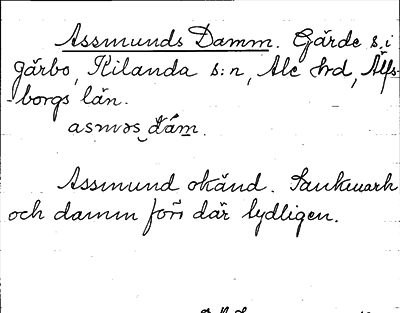 Assmunds Damm. Gärde s. i
gärbo, Kilanda s:n, Ale hrd, Älfs-
-borgs län.
asmǝs dám.
Assmund okänd. Sankmark
och damm förr där tydligen.